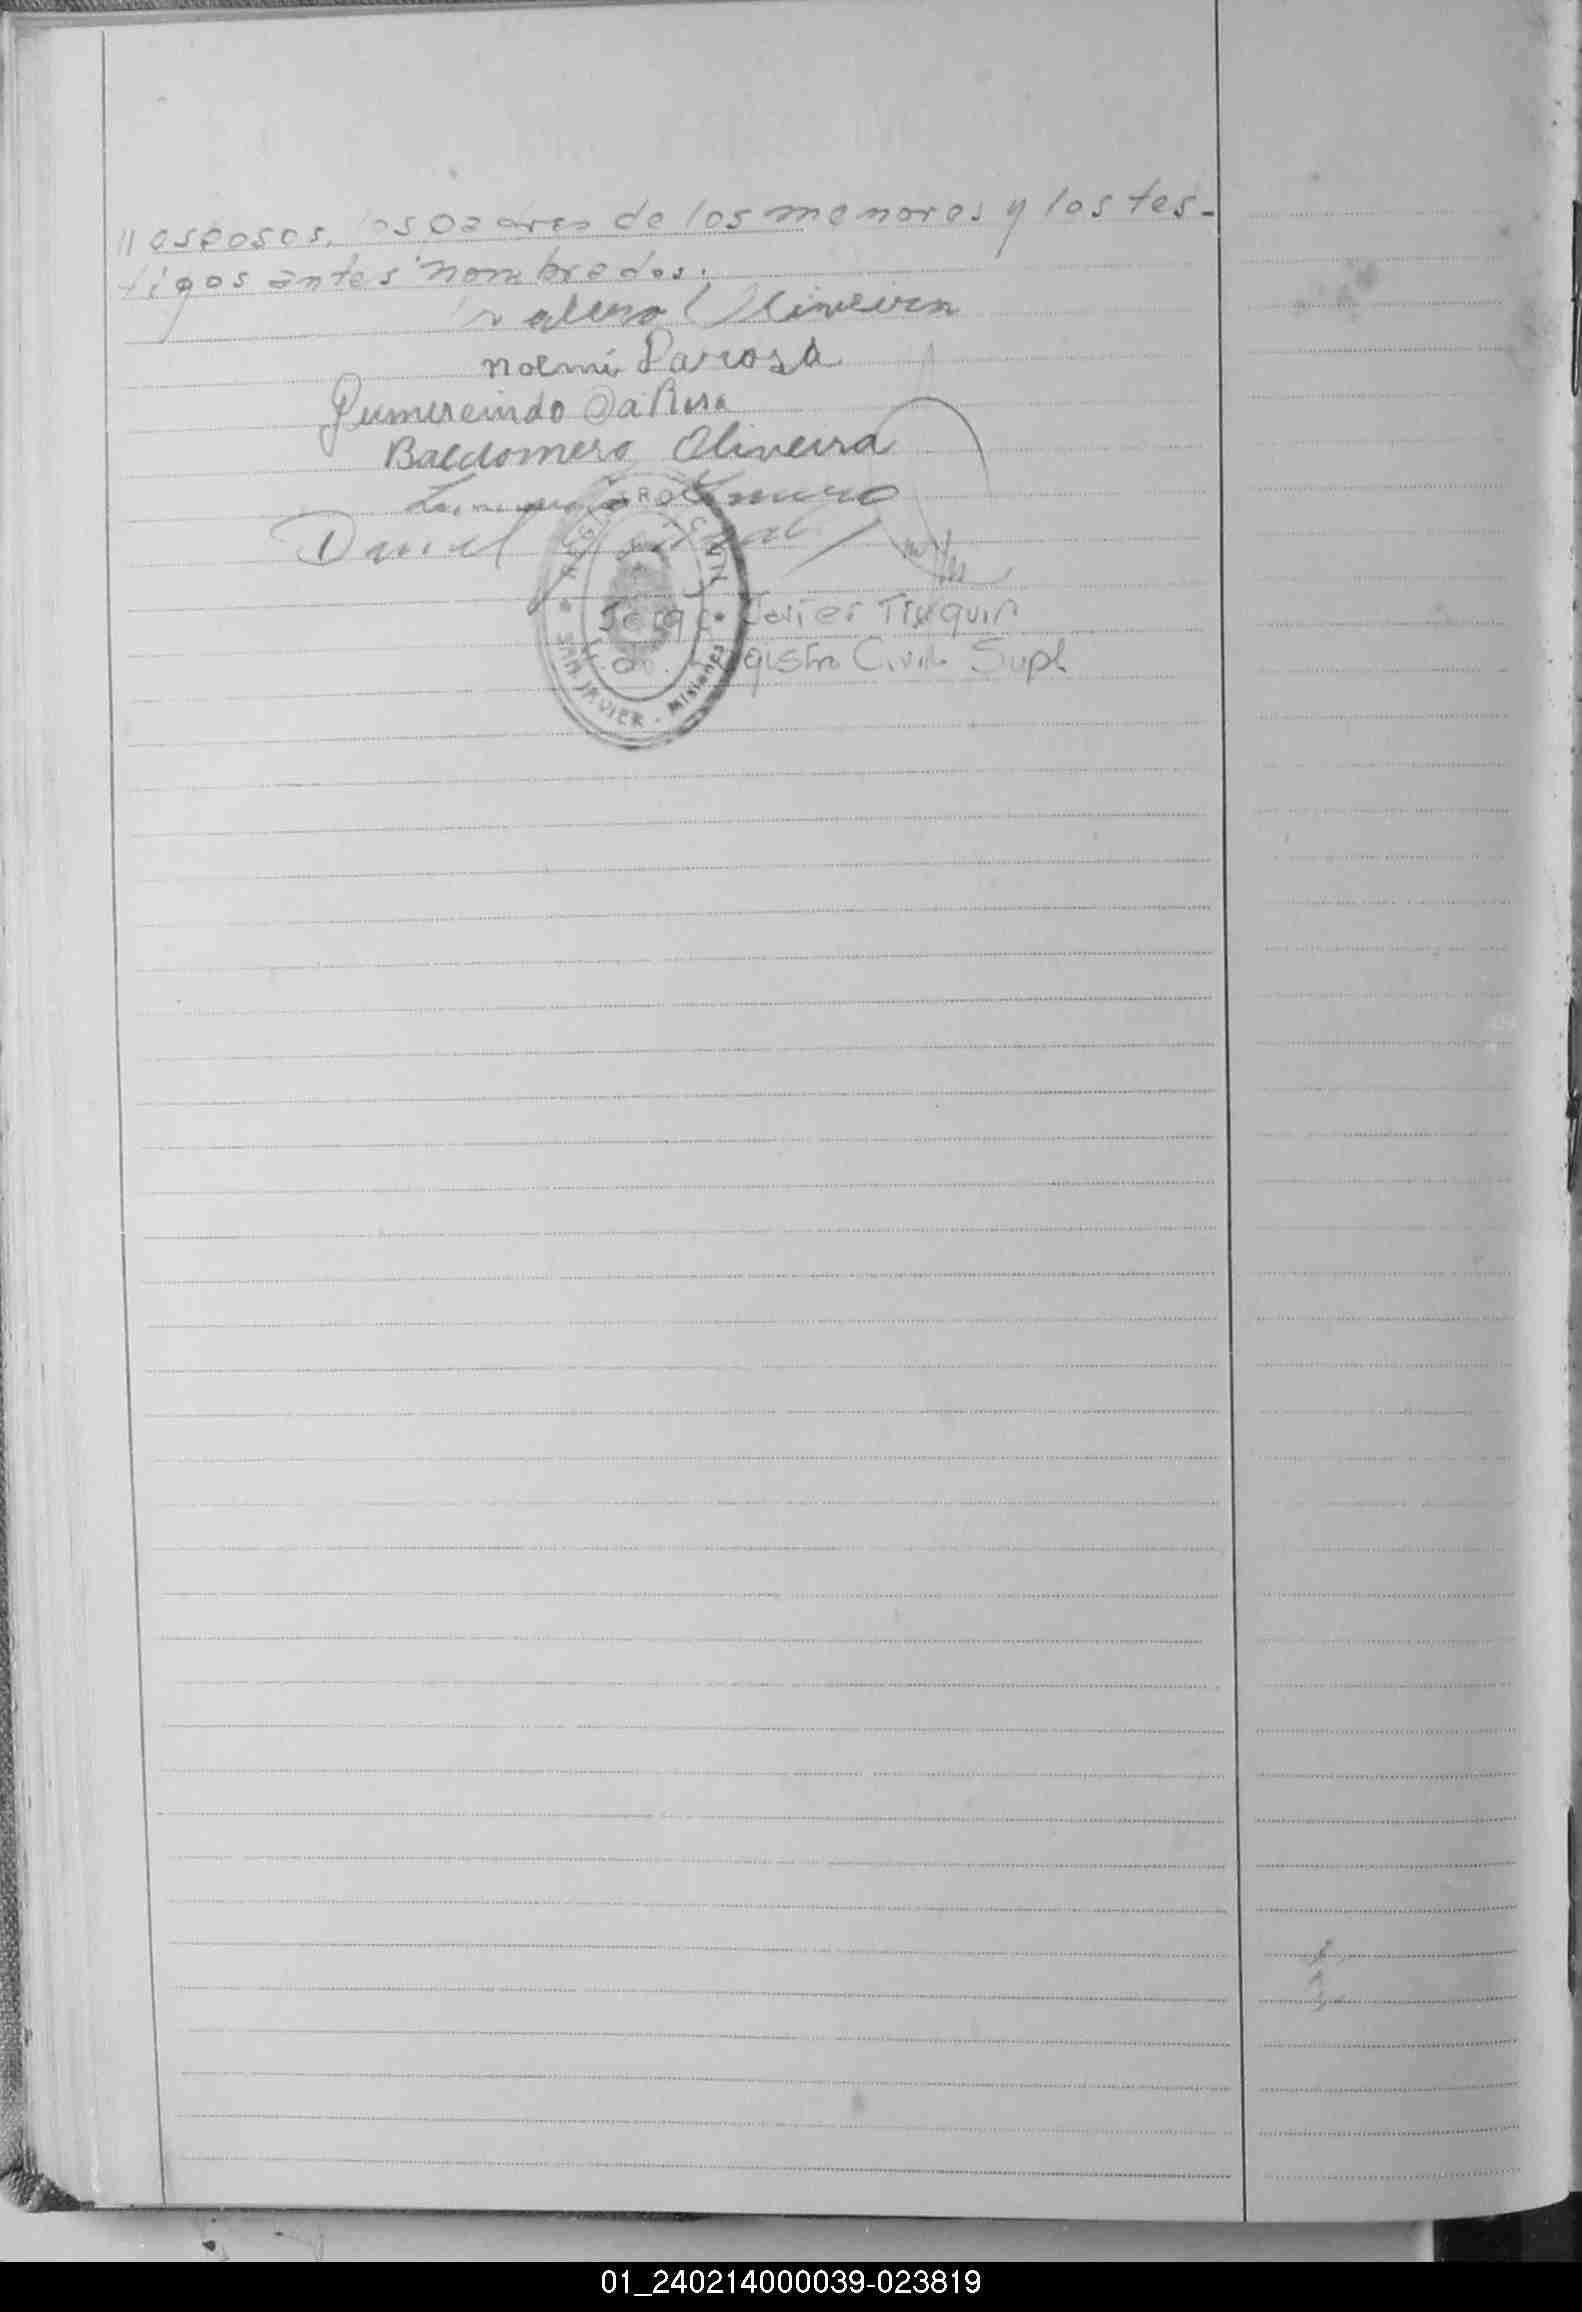 // esposos, los padres de los menores y los tes-
tigos antes nombrados.
Oliveira
noemi Darosa
Gumercindo Da Rosa
Baldomero Oliveira
Daniel
REGISTRO CIVIL
Javier
Registro Civil Supl
SAN JAVIER - Misiones
01_240214000039-023819